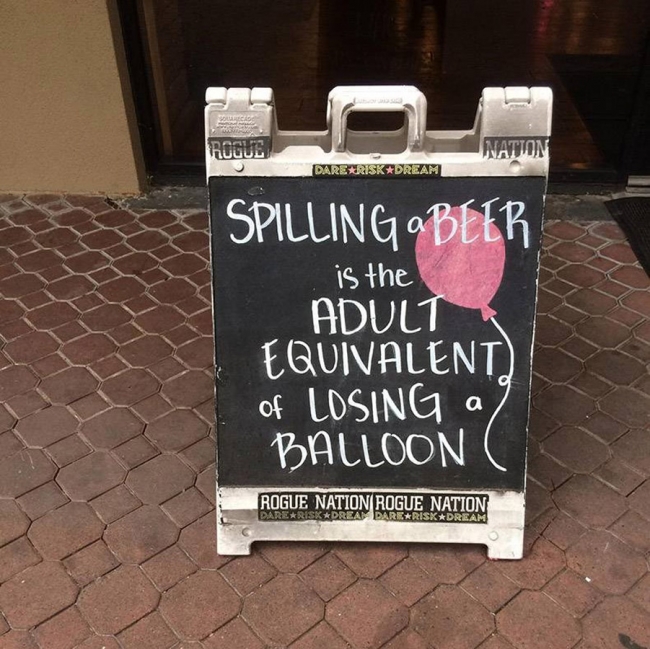 ROGUE NATION
DARE★RISK★DREAM
SPILLING a BEER
is the
ADULT
EQUIVALENT
of LOSING a
BALLOON
ROGUE NATION ROGUE NATION
DARE★RISK★DREAM DARE★RISK★DREAM